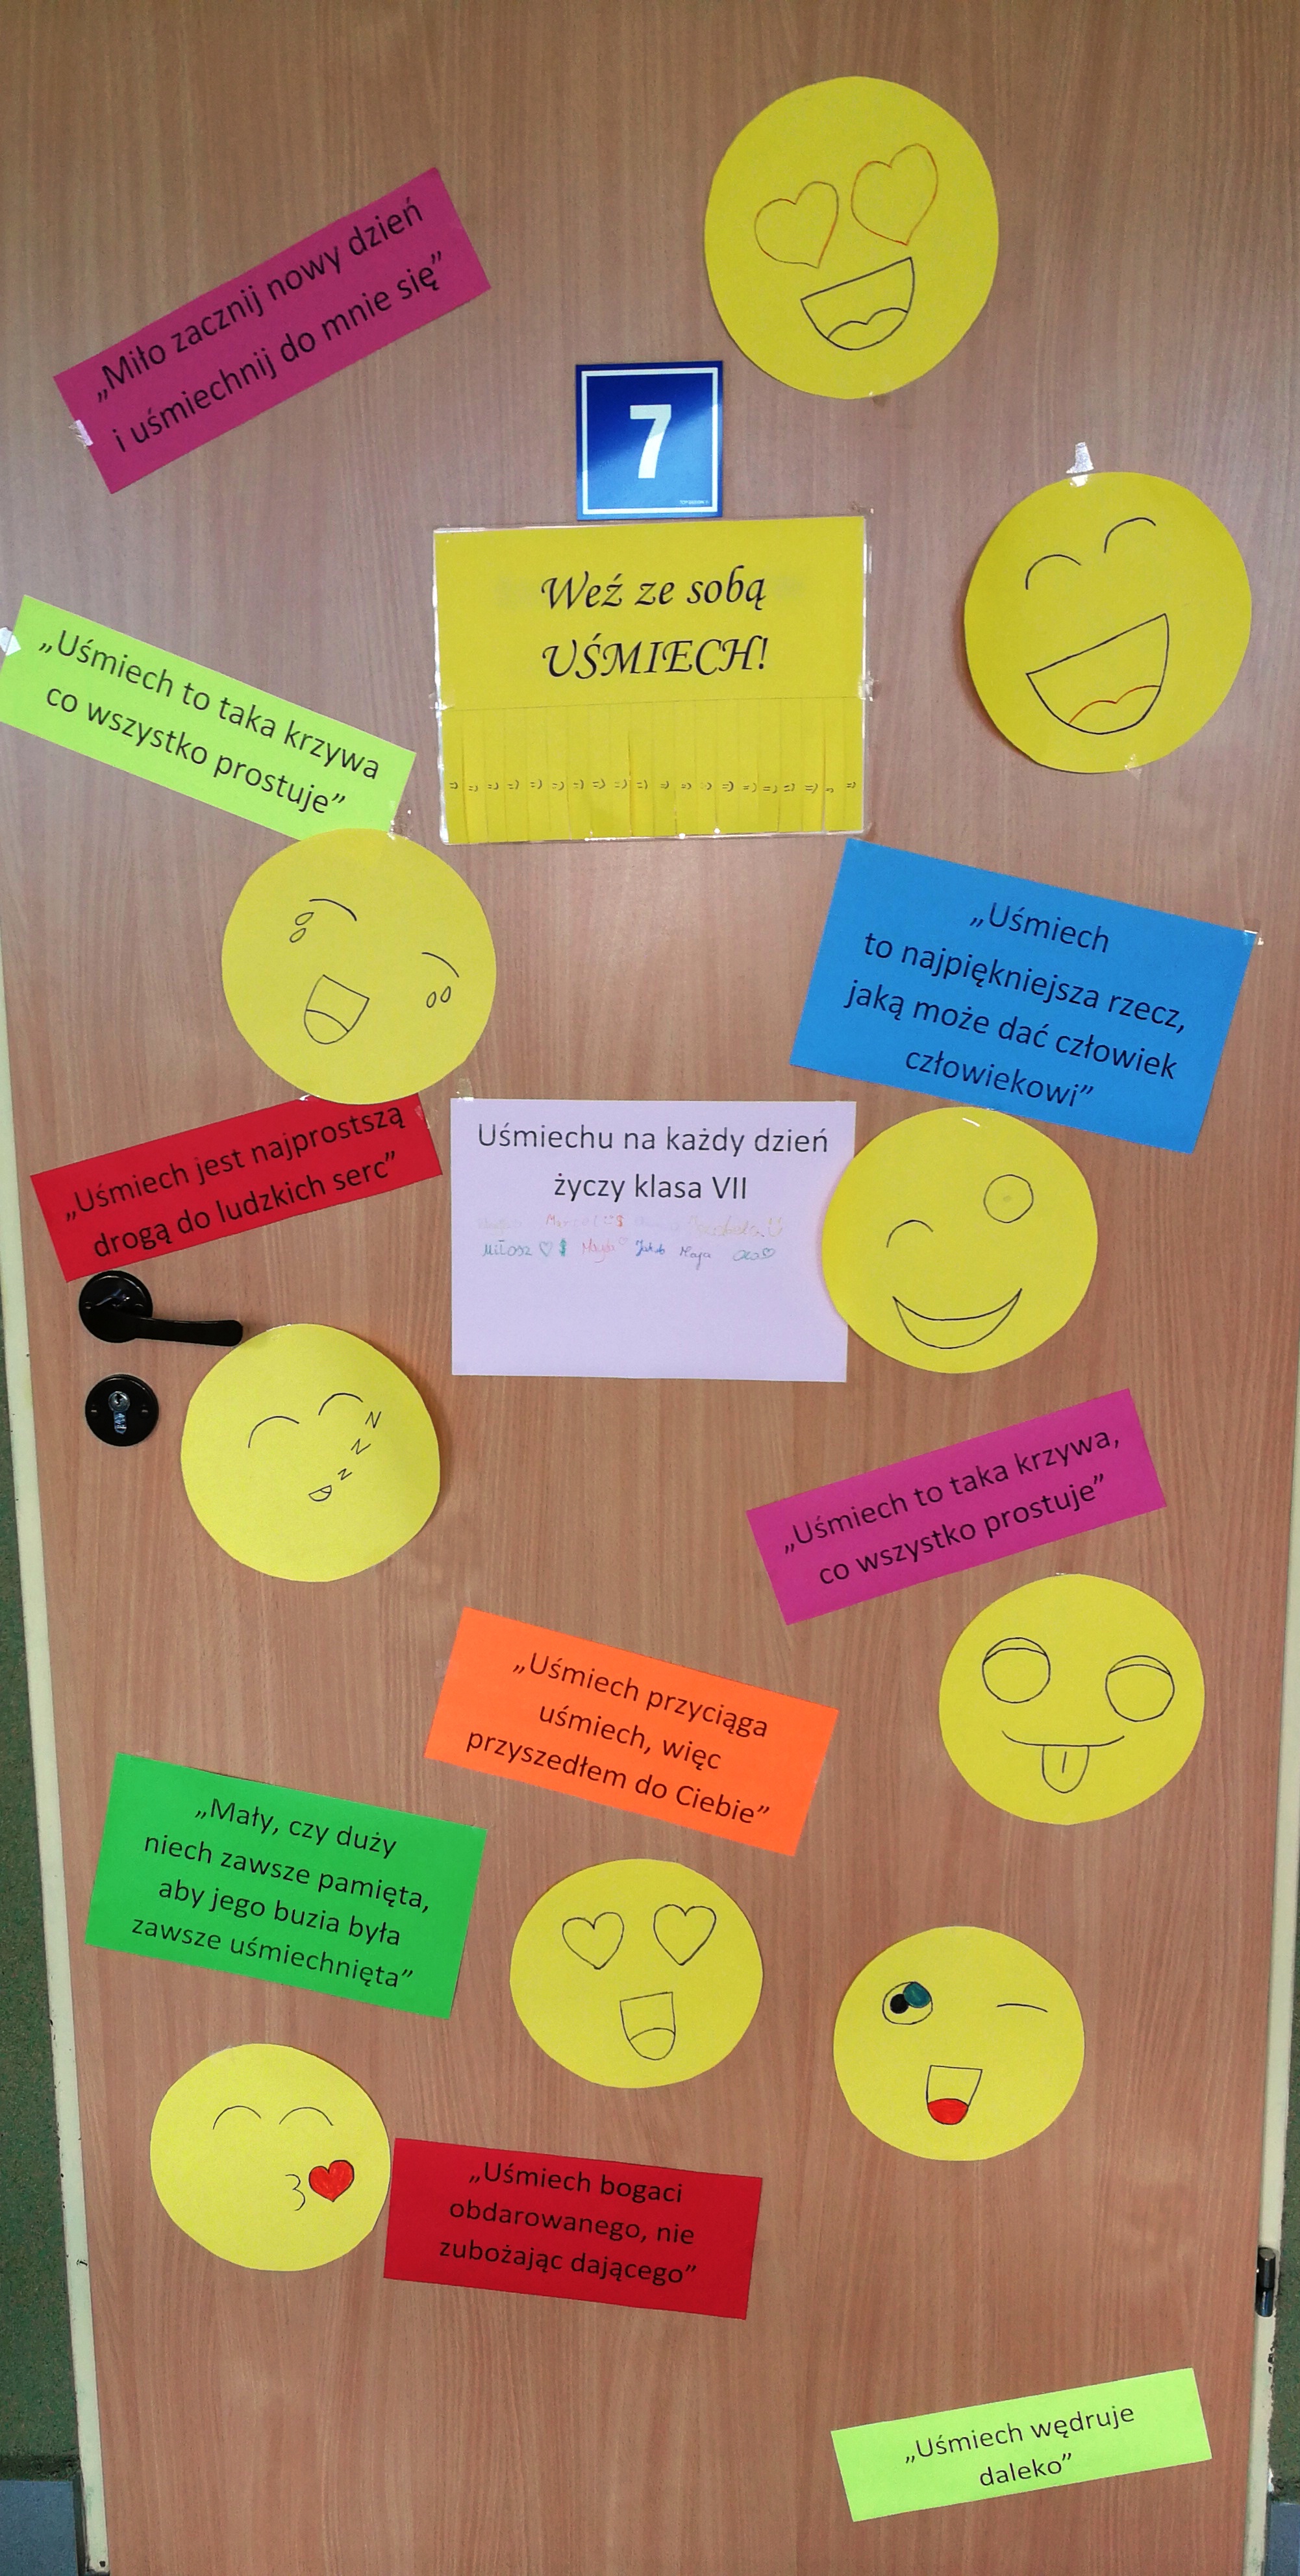 „Miło zacznij nowy dzień
i uśmiechnij do mnie się”
7
Weź ze sobą
UŚMIECH!
=) =) =) =) =) =) =) =) =) =) =) =) =) =) =) =) =) =) =) =)
„Uśmiech to taka krzywa
co wszystko prostuje”
„Uśmiech
to najpiękniejsza rzecz,
jaką może dać człowiek
człowiekowi”
„Uśmiech jest najprostszą
drogą do ludzkich serc”
Uśmiechu na każdy dzień
życzy klasa VII
Marcel
Miłosz Magda Jakub Maja Ola
z
z
z
„Uśmiech to taka krzywa,
co wszystko prostuje”
„Uśmiech przyciąga
uśmiech, więc
przyszedłem do Ciebie”
„Mały, czy duży
niech zawsze pamięta,
aby jego buzia była
zawsze uśmiechnięta”
„Uśmiech bogaci
obdarowanego, nie
zubożając dającego”
„Uśmiech wędruje
daleko”